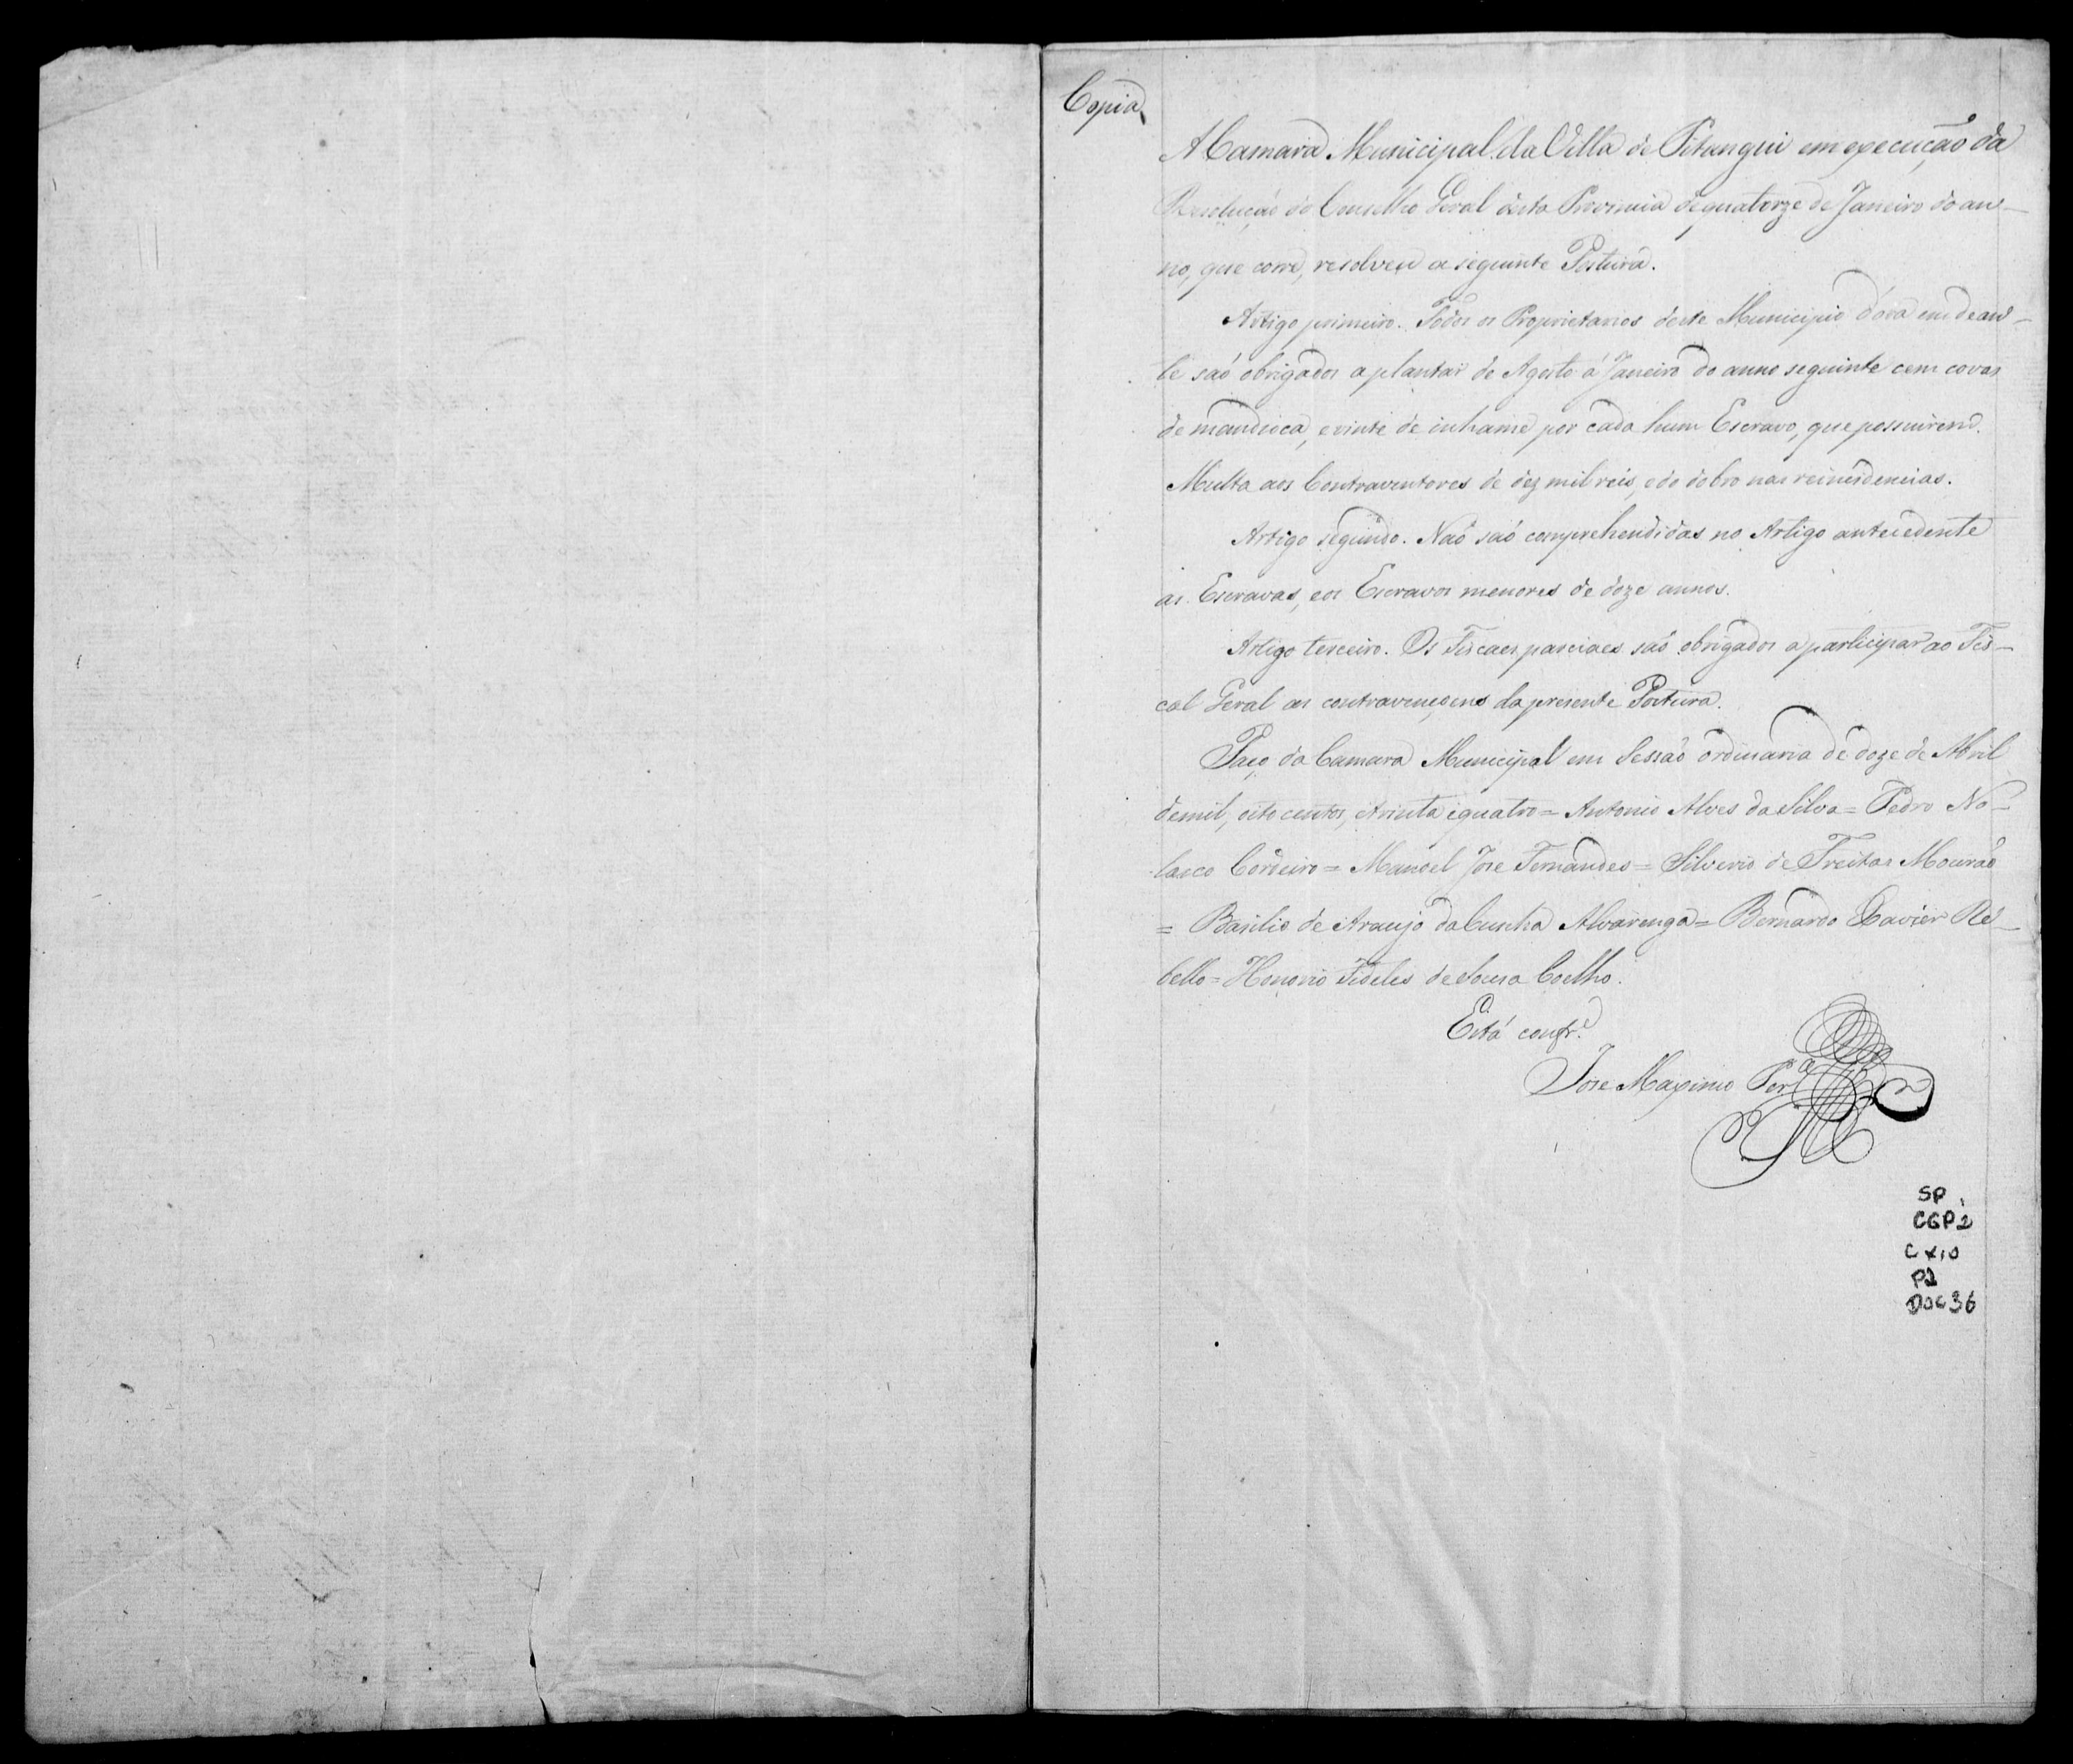 Copia
A Camara Municipal da Villa de Pitangui em execução da
Resolução do Conselho Geral desta Provincia de quatorze de Janeiro do an-
no, que corre, resolveu a seguinte Postura.
Artigo primeiro. Todos os Proprietarios deste Municipio d'óra em dean-
te saõ obrigados a plantar de Agosto á Janeiro do anno seguinte cem covas
de mandioca, e vinte de inhame por cada hum Escravo, que possuirem.
Multa aos Contraventores de dez mil reis, e do dobro nas reincidencias.
Artigo segundo. Naõ saõ comprehendidas no Artigo antecedente
as Escravas, e os Escravos menores de doze annos.
Artigo terceiro. Os Fiscaes parciaes saõ obrigados a participar ao Fis-
cal Geral as contravençoens da presente Postura.
Paço da Camara Municipal em Sessaõ ordinaria de doze de Abril
de mil, oito centos, e trinta e quatro = Antonio Alves da Silva = Pedro No-
lasco Cordeiro = Manoel Jose Fernandes = Silverio de Freitas Mouraõ
= Basilio de Araujo da Cunha Alvarenga = Bernardo Xavier Re-
bello = Honorio Fideles de Sousa Coelho.
Está confr.e
Jose Maximo Per.a
SP
CGP2
CX10
P2
DOC 36